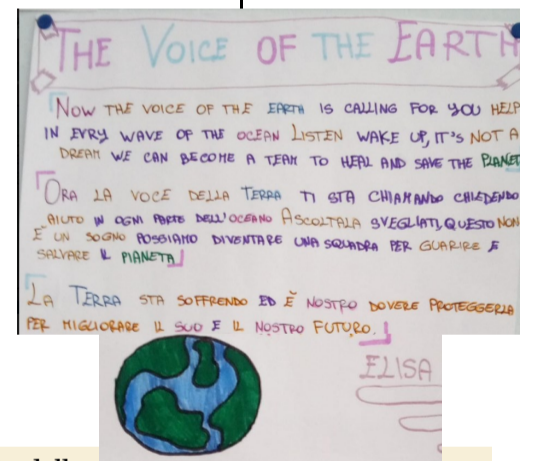 THE VOICE OF THE EARTH
NOW THE VOICE OF THE EARTH IS CALLING FOR YOU HELP
IN EVRY WAVE OF THE OCEAN LISTEN WAKE UP, IT'S NOT A
DREAM WE CAN BECOME A TEAM TO HEAL AND SAVE THE PLANET
ORA LA VOCE DELLA TERRA TI STA CHIAMANDO CHIEDENDO
AIUTO IN OGNI PARTE DELL'OCEANO ASCOLTALA SVEGLIATI, QUESTO NON
È UN SOGNO POSSIAMO DIVENTARE UNA SQUADRA PER GUARIRE E
SALVARE IL PIANETA
LA TERRA STA SOFFRENDO ED È NOSTRO DOVERE PROTEGGERLA
PER MIGLIORARE IL SUO E IL NOSTRO FUTURO.
ELISA